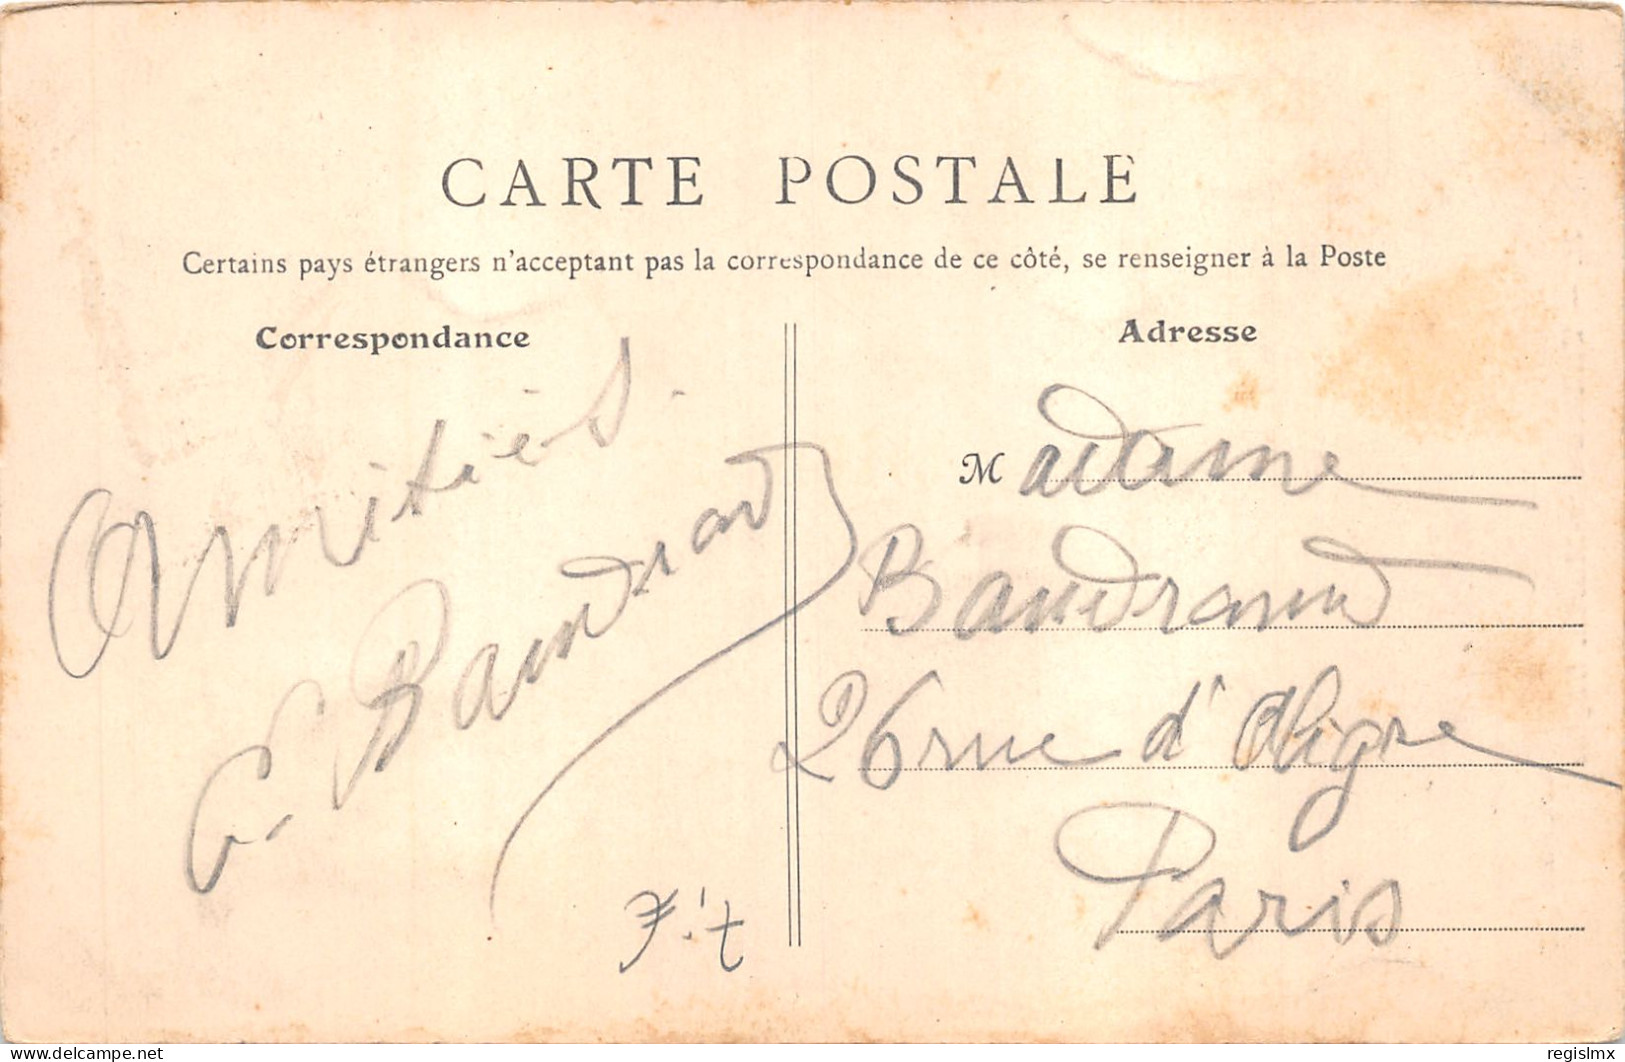 CARTE POSTALE
Certains pays étrangers n'acceptant pas la correspondance de ce côté, se renseigner à la Poste
Correspondance
Amitiés.
Baudrand
Adresse
Madame
Baudrand
26 rue d'Aligre
Paris
regislmx